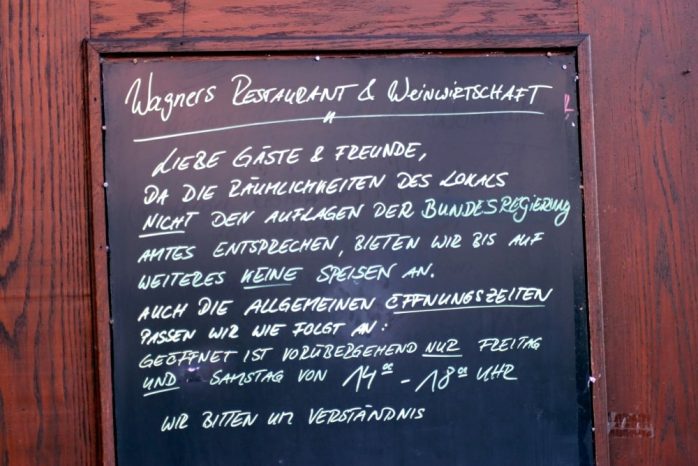 Wagners RESTAURANT & WEINWIRTSCHAFT
LIEBE GÄSTE & FREUNDE,
DA DIE RÄUMLICHKEITEN DES LOKALS
NICHT DEN AUFLAGEN DER BUNDESREGIERUNG
AMTES ENTSPRECHEN, BIETEN WIR BIS AUF
WEITERES KEINE SPEISEN AN.
AUCH DIE ALLGEMEINEN ÖFFNUNGSZEITEN
PASSEN WIR WIE FOLGT AN:
GEÖFFNET IST VORÜBERGEHEND NUR FREITAG
UND SAMSTAG VON 14⁰⁰ - 18⁰⁰ UHR
WIR BITTEN UM VERSTÄNDNIS